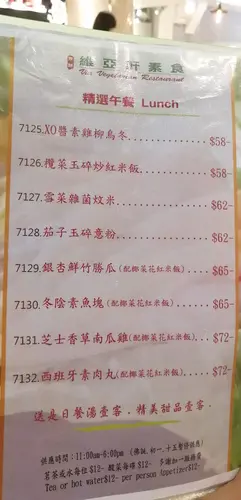 維亞軒素食
Vea Vegetarian Restaurant
精選午餐 Lunch
7125.XO醬素雞柳烏冬............$58-
7126.欖菜玉碎炒紅米飯.........$58-
7127.雪菜雜菌炆米...............$62-
7128.茄子玉碎意粉...............$62-
7129.銀杏鮮竹勝瓜(配椰菜花紅米飯)...$65-
7130.冬陰素魚塊(配椰菜花紅米飯)......$65-
7131.芝士香草南瓜雞(配椰菜花紅米飯)..$72-
7132.西班牙素肉丸(配椰菜花紅米飯)...$72-
送是日餐湯壹客，精美甜品壹客．
供應時間：11:00am-6:00pm (佛誕，初一．十五暫停供應)
茗茶或水每位$12- 醃菜每碟 $12- 多謝加一服務費
Tea or hot water$12- per person Appetizer$12-